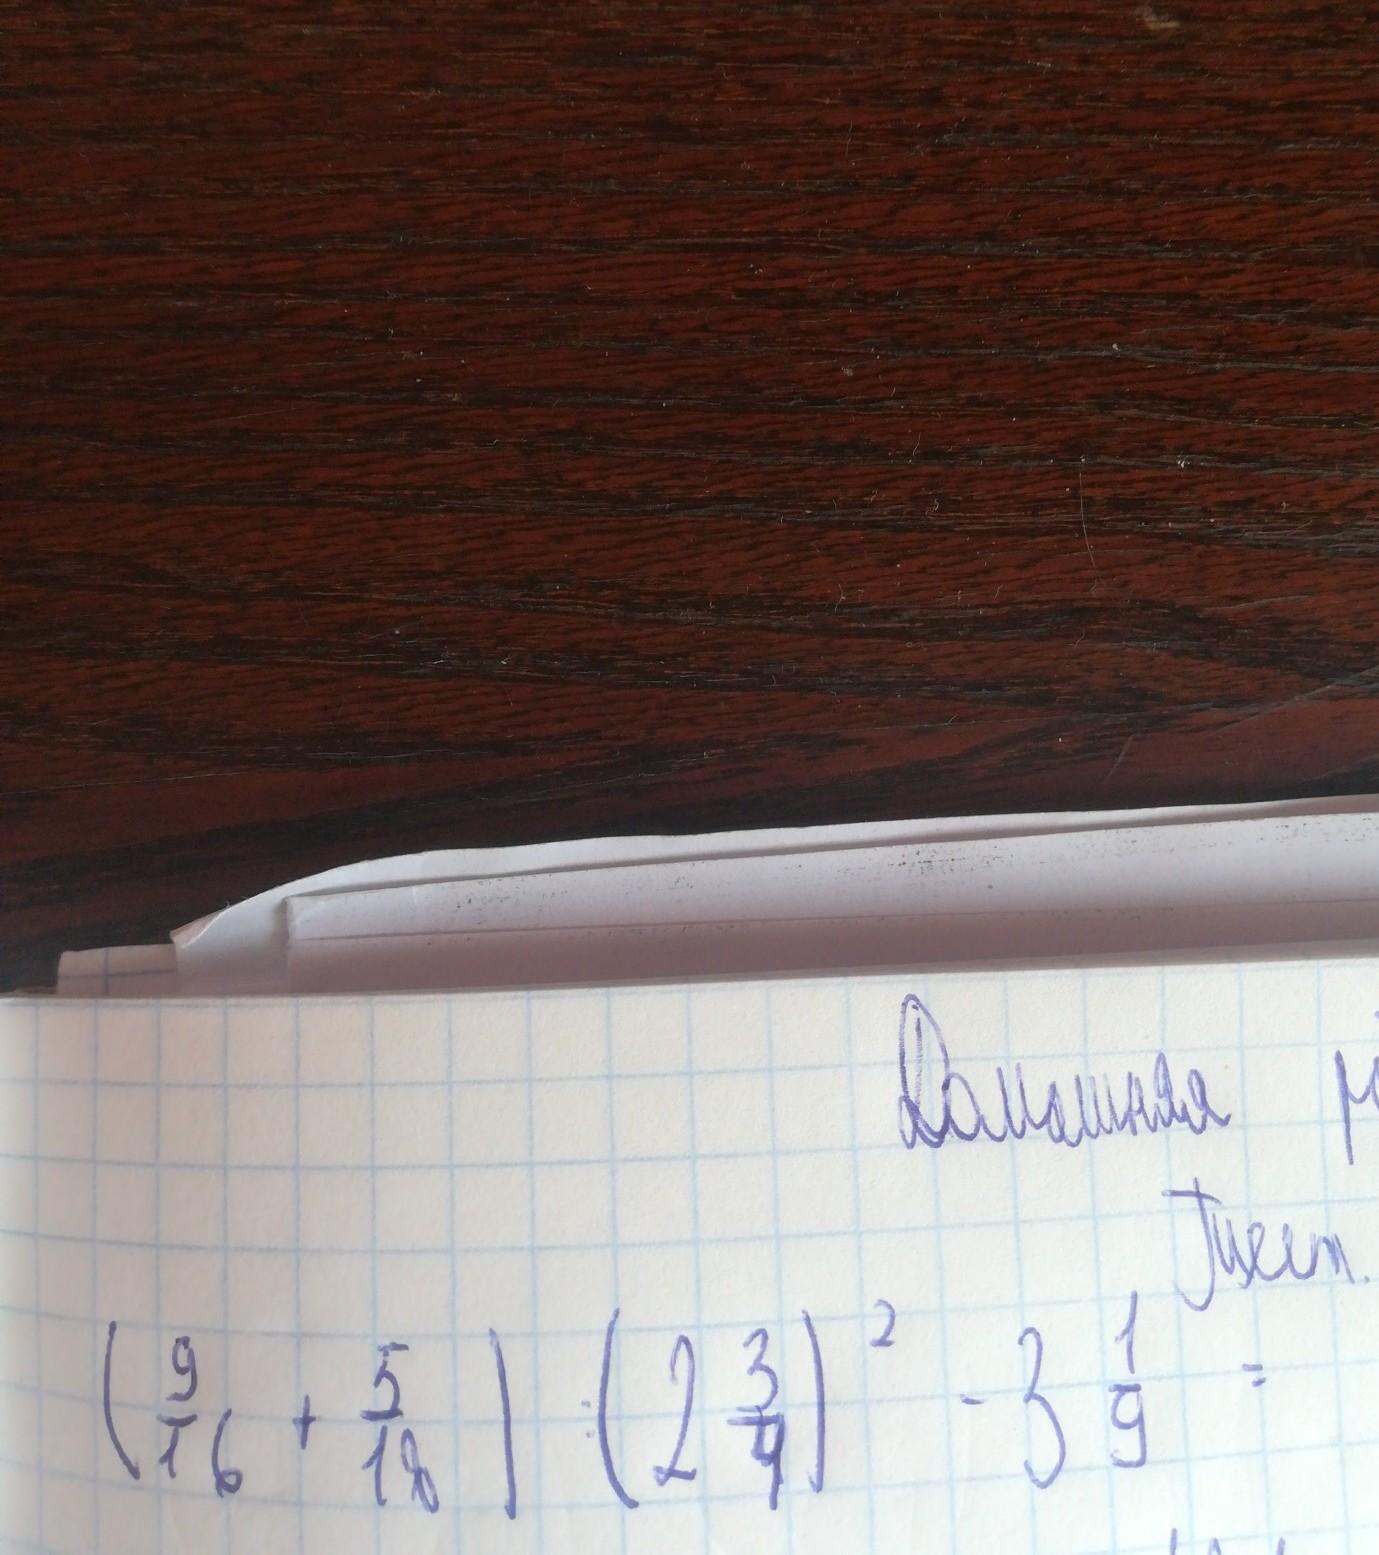 Домашняя
Тест.
(9/16 + 5/18) : (2 3/4)² - 3 1/9 =